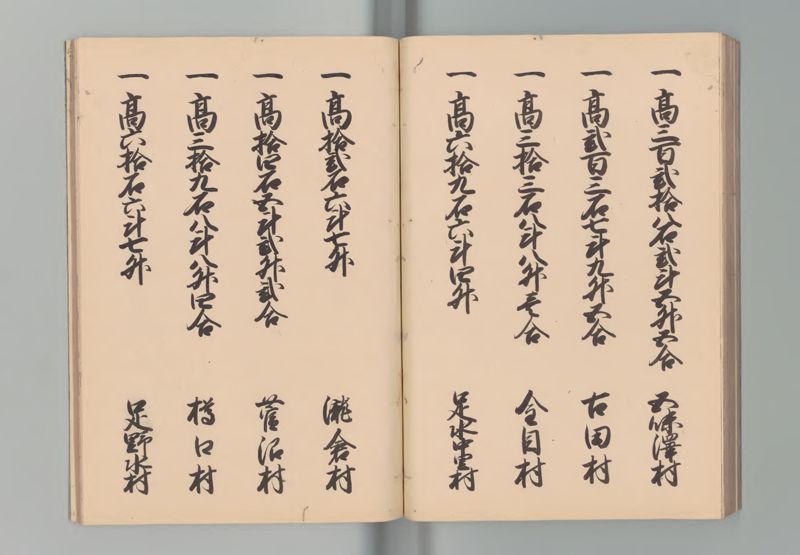 一高三百弐拾八石弐斗五升五合 五味澤村
一高弐百三石七斗九升五合 古田村
一高三拾三石八斗八升壱合 金目村
一高六拾九石六斗四升 足水中里村
一高拾弐石六斗七升 滝倉村
一高拾四石五斗弐升弐合 菅沼村
一高三拾九石八斗八升四合 樽口村
一高六拾石六斗七升 足野水村